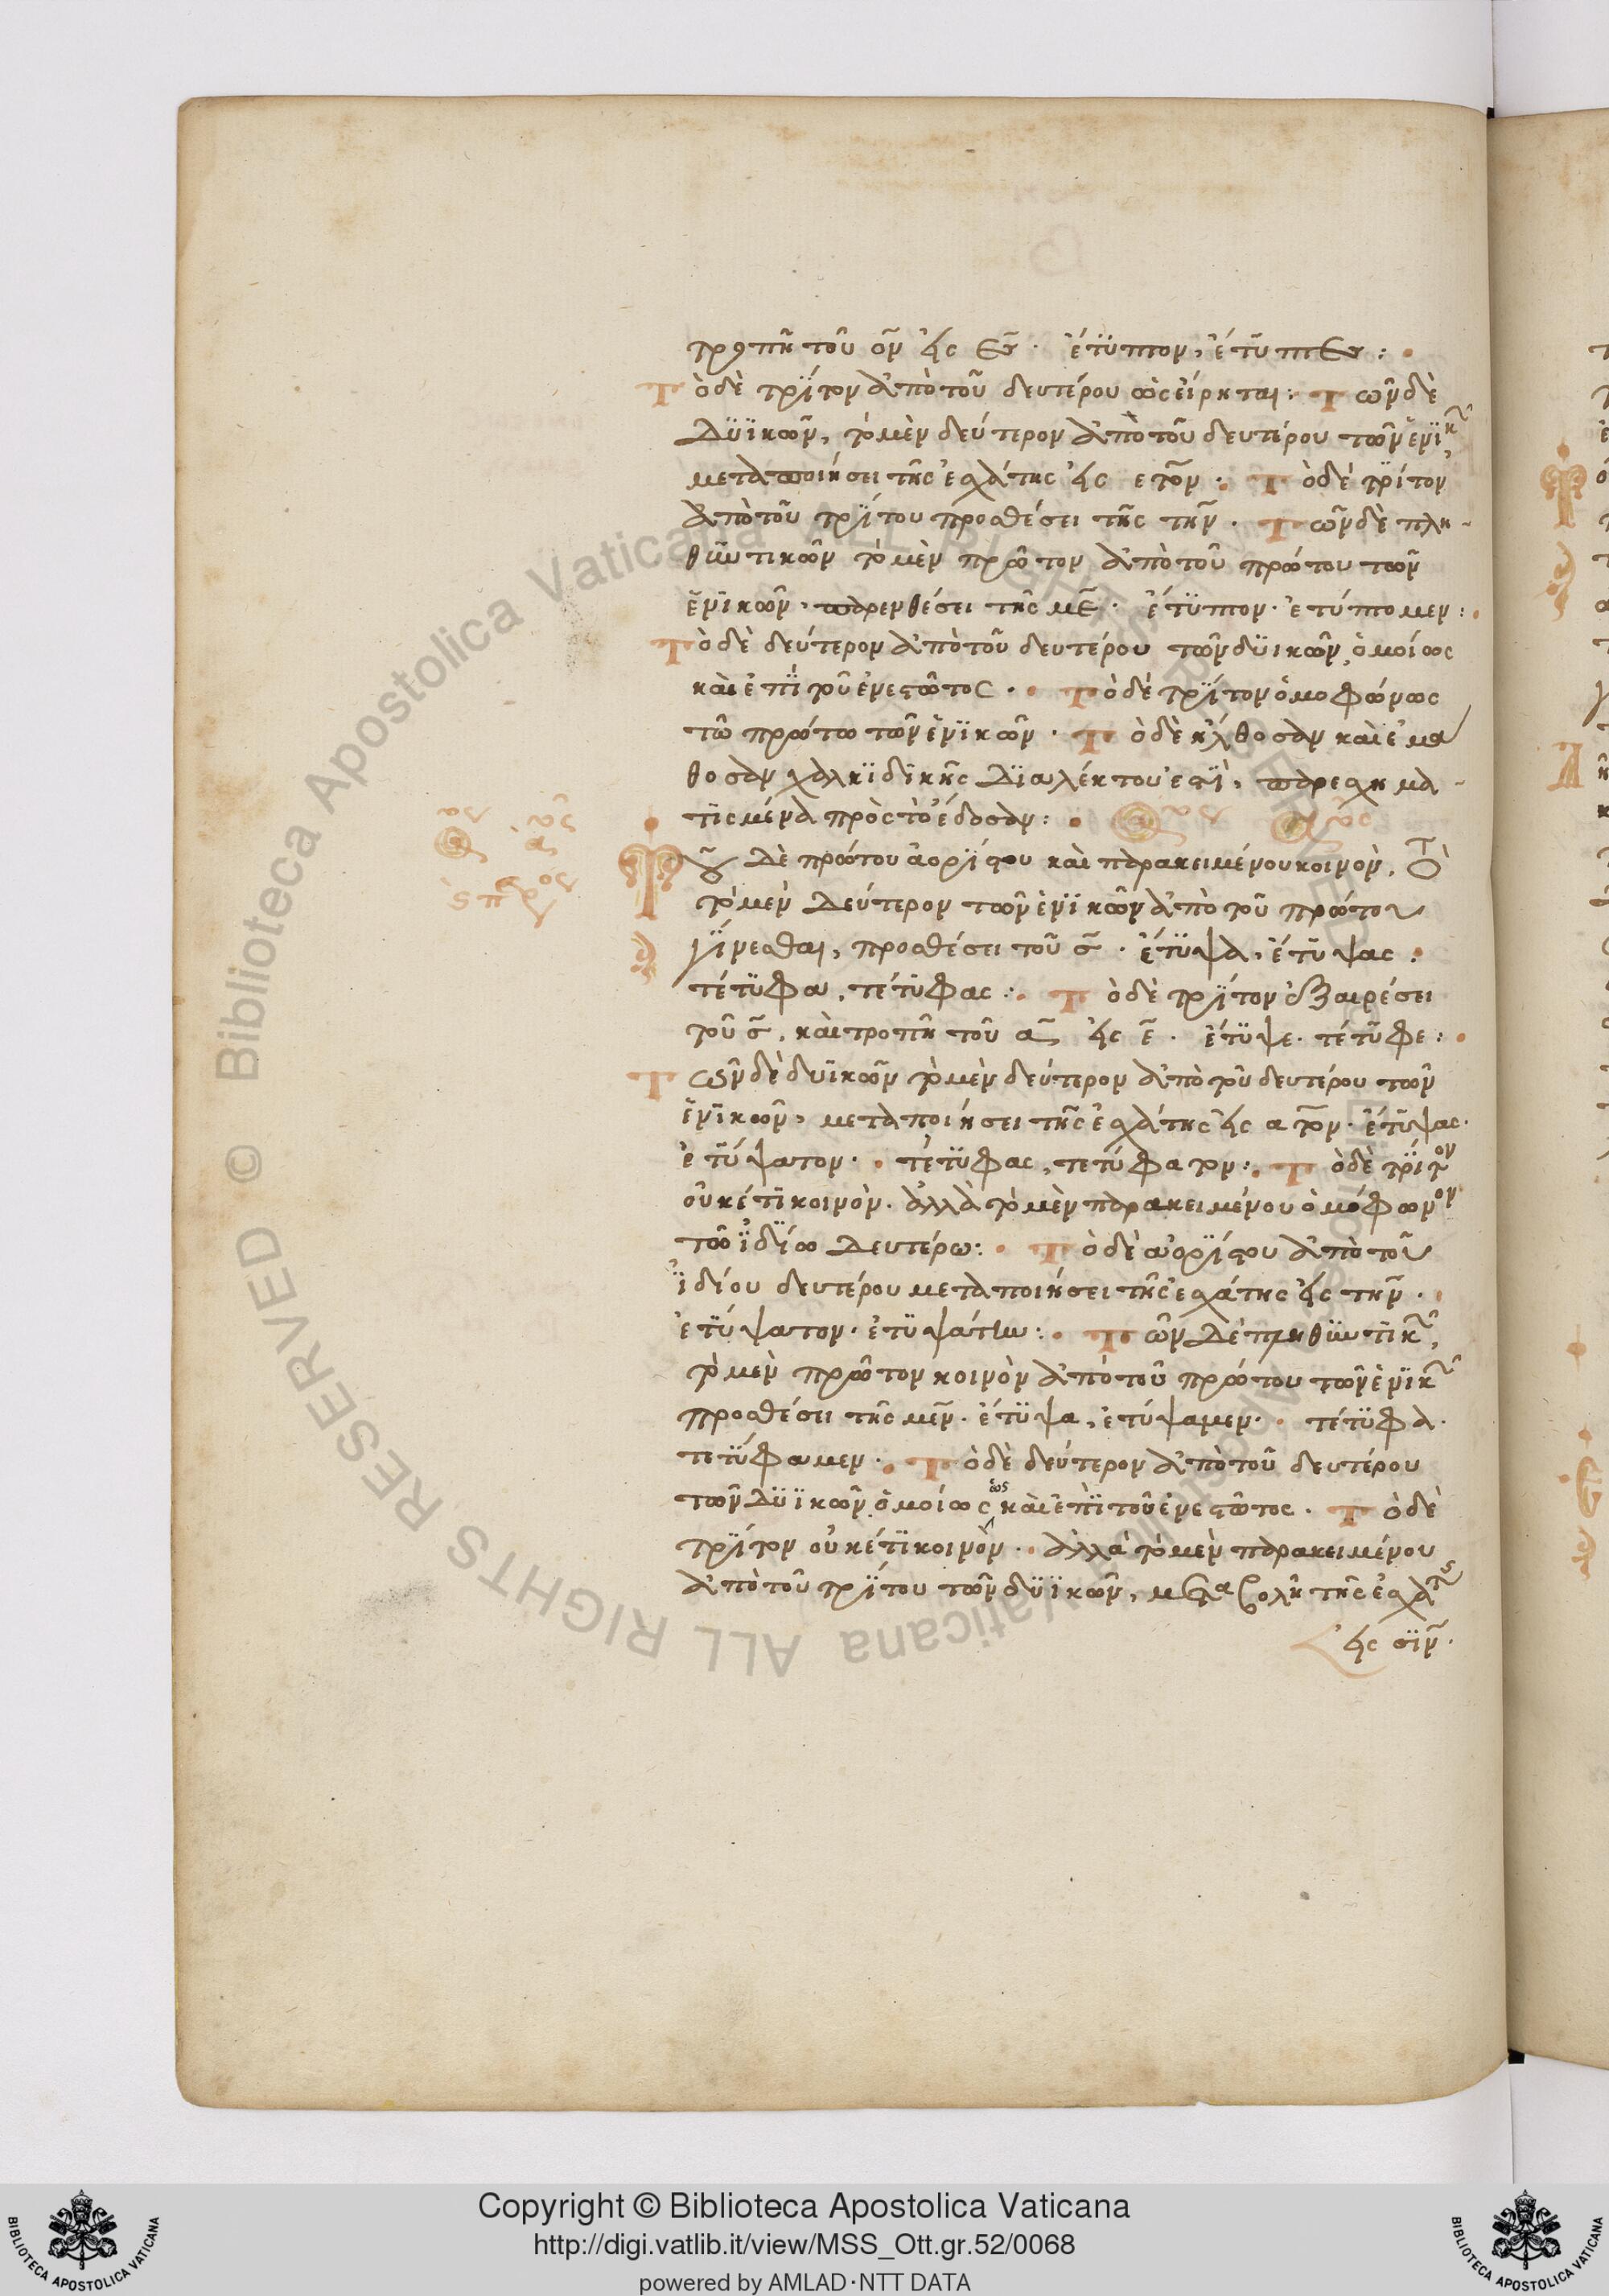 τροπῆ τοῦ ον εἰς ες. ἔτυπον, ἔτυπες:
Τὸ δὲ τρίτον ἀπὸ τοῦ δευτέρου ὡς εἴρηται: Τῶν δὲ
δυϊκῶν, τὸ μὲν δεύτερον ἀπὸ τοῦ δευτέρου τῶν ἑνικ
μεταποιήσει τῆς ἐσχάτης εἰς ετον. Τὸ δὲ τρίτον
ἀπὸ τοῦ τρίτου προσθέσει τῆς την. Τῶν δὲ πλη-
θυντικῶν τὸ μὲν πρῶτον ἀπὸ τοῦ πρώτου τῶν
ἑνικῶν. παρενθέσει τῆς με. ἔτυπον. ἐτύπομεν:
Τὸ δὲ δεύτερον ἀπὸ τοῦ δευτέρου τῶν δυικῶν, ὁμοίως
καὶ ἐπὶ τοῦ ἐνεστῶτος. Τὸ δὲ τρίτον ὁμοφώνως
τῶ πρώτω τῶν ἑνικῶν. Τὸ δὲ ἤλθοσαν καὶ ἐμα
θοσαν χαλκιδικῆς διαλέκτου ἐστὶ, παρεσχημα-
τισμένα πρὸς τὸ ἐδοσαν:
Τοῦ δὲ πρώτου ἀορίστου καὶ παρακειμένου κοινὸν, τὸ
τὸ μὲν δεύτερον τῶν ἑνικῶν ἀπὸ τοῦ πρώτου
γίνεσθαι, προσθέσει τοῦ σ. ἔτυψα, ἔτυψας.
τέτυφα, τέτυφας: Τὸ δὲ τρίτον ἐξαιρέσει
τοῦ σ, καὶ τροπῆ τοῦ α εἰς ε. ἔτυψε. τέτυφε:
Τῶν δὲ δυϊκῶν τὸ μὲν δεύτερον ἀπὸ τοῦ δευτέρου τῶν
ἑνικῶν, μεταποιήσει τῆς ἐσχάτης εἰς ατον. ἔτυψας.
ἐτύψατον. τέτυφας, τετύφατον: Τὸ δὲ τρίτον
οὐκέτι κοινὸν. ἀλλὰ τὸ μὲν παρακειμένου ὁμόφωνον
τῶ ἰδίω δευτέρω: Τὸ δὲ ἀορίστου ἀπὸ τοῦ
ἰδίου δευτέρου μεταποιήσει τῆς ἐσχάτης εἰς την.
ἐτύψατον. ἐτυψάτην: Τῶν δὲ πληθυντικ,
τὸ μὲν πρῶτον κοινὸν ἀπὸ τοῦ πρώτου τῶν ἑνικ
προσθέσει τῆς μεν. ἔτυψα, ἐτύψαμεν. τέτυφα.
τετύφαμεν. Τὸ δὲ δεύτερον ἀπὸ τοῦ δευτέρου
τῶν δυϊκῶν ὁμοίως ὡς καὶ ἐπὶ τοῦ ἐνεστῶτος. Τὸ δὲ
τρίτον οὐκέτι κοινὸν. ἀλλὰ τὸ μὲν παρακειμένου
ἀπὸ τοῦ τρίτου τῶν δυϊκῶν, μεταβολῆ τῆς ἐσχάτης
εἰς σιν.
© Biblioteca Apostolica Vaticana ALL RIGHTS RESERVED
Copyright © Biblioteca Apostolica Vaticana
http://digi.vatlib.it/view/MSS_Ott.gr.52/0068
powered by AMLAD·NTT DATA
BIBLIOTECA APOSTOLICA VATICANA
BIBLIOTECA APOSTOLICA VATICANA